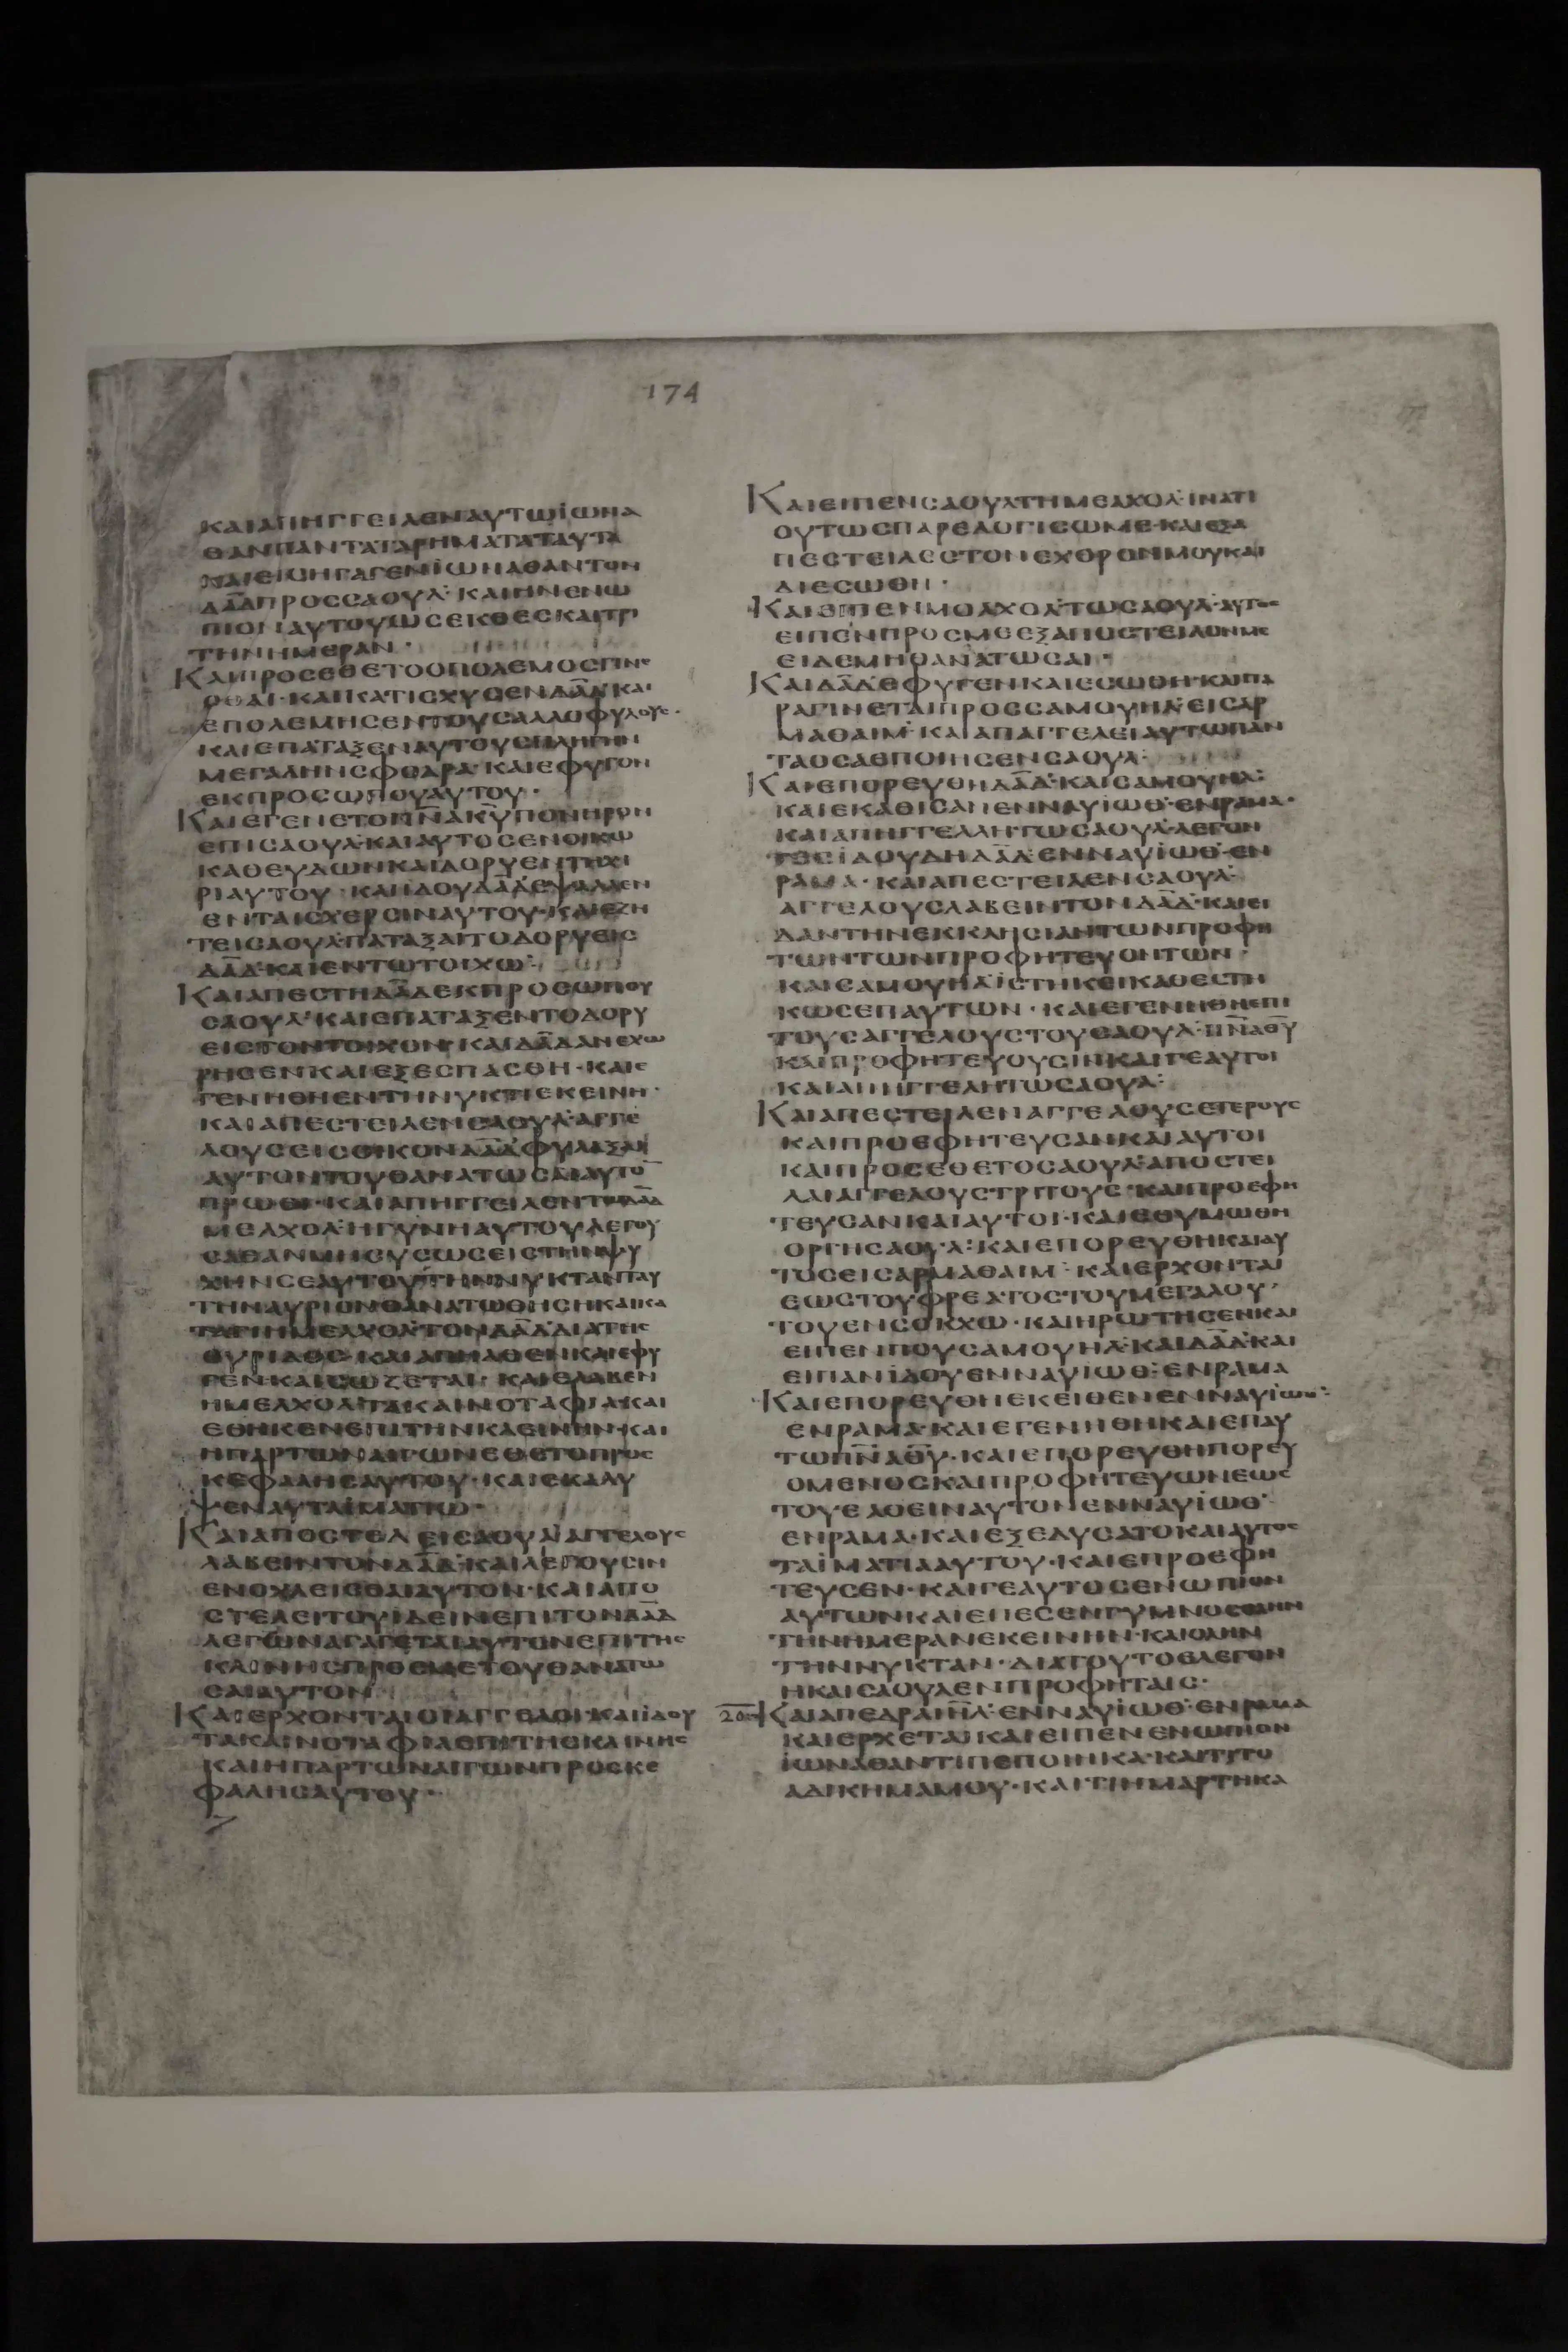 174
ΚΑΙΑΠΗΓΓΕΙΛΕΝΑΥΤΩΪΩΝΑ
ΘΑΝΠΑΝΤΑΤΑΡΗΜΑΤΑΤΑΥΤΑ
ΚΑΙΕΙΣΗΓΑΓΕΝΪΩΝΑΘΑΝΤΟΝ
ΔΑΔΠΡΟΣΣΑΟΥΛ· ΚΑΙΗΝΕΝΩ
ΠΙΟΝΑΥΤΟΥΩΣΕΙΚΘΕΣΚΑΙΤΡΙ
ΤΗΝΗΜΕΡΑΝ·
ΚΑΙΠΡΟΣΕΘΕΤΟΟΠΟΛΕΜΟΣΓΙΝΕ
ΣΘΑΙ·ΚΑΙΚΑΤΙΣΧΥΣΕΝΔΑΔ·ΚΑΙ
ΕΠΟΛΕΜΗΣΕΝΤΟΥΣΑΛΛΟΦΥΛΟΥΣ·
ΚΑΙΕΠΑΤΑΞΕΝΑΥΤΟΥΣΠΛΗΓΗΝ
ΜΕΓΑΛΗΝΣΦΟΔΡΑ·ΚΑΙΕΦΥΓΟΝ
ΕΚΠΡΟΣΩΠΟΥΑΥΤΟΥ·
ΚΑΙΕΓΕΝΕΤΟΠΝΑΚΥΠΟΝΗΡΟΝ
ΕΠΙΣΑΟΥΛ·ΚΑΙΑΥΤΟΣΕΝΟΙΚΩ
ΚΑΘΕΥΔΩΝΚΑΙΔΟΡΥΕΝΤΗΧΙ
ΡΙΑΥΤΟΥ·ΚΑΙΪΔΟΥΔΑΔΕΨΑΛΛΕΝ
ΕΝΤΑΙΣΧΕΡΣΙΝΑΥΤΟΥ·ΚΑΙΕΖΗ
ΤΕΙΣΑΟΥΛ·ΠΑΤΑΞΑΙΤΟΔΟΡΥΕΙΣ
ΔΑΔ·ΚΑΙΕΝΤΩΤΟΙΧΩ·
ΚΑΙΑΠΕΣΤΗΔΑΔΕΚΠΡΟΣΩΠΟΥ
ΣΑΟΥΛ·ΚΑΙΕΠΑΤΑΞΕΝΤΟΔΟΡΥ
ΕΙΣΤΟΝΤΟΙΧΟΝ·ΚΑΙΔΑΔΑΝΕΧΩ
ΡΗΣΕΝΚΑΙΕΞΕΣΠΑΣΘΗ·ΚΑΙΕ
ΓΕΝΗΘΗΕΝΤΗΝΥΚΤΙΕΚΕΙΝΗ·
ΚΑΙΑΠΕΣΤΕΙΛΕΝΣΑΟΥΛ·ΑΓΓΕ
ΛΟΥΣΕΙΣΟΙΚΟΝΔΑΔ·ΦΥΛΑΞΑΙ
ΑΥΤΟΝΤΟΥΘΑΝΑΤΩΣΑΙΑΥΤΟ
ΠΡΩΘΙ·ΚΑΙΑΠΗΓΓΕΙΛΕΝΤΩΔΑΔ
ΜΕΛΧΟΛ·ΗΓΥΝΗΑΥΤΟΥΛΕΓΟΥ
ΣΑΘΑΝΜΗΣΥΣΩΣΕΙΣΤΗΝΨΥ
ΧΗΝΣΕΑΥΤΟΥΤΗΝΝΥΚΤΑΝΤΑΥ
ΤΗΝΑΥΡΙΟΝΘΑΝΑΤΩΘΗΣΗΚΑΙΚΑ
ΤΑΓΕΙΗΜΕΛΧΟΛ·ΤΟΝΔΑΔ·ΔΙΑΤΗΣ
ΘΥΡΙΔΟΣ·ΚΑΙΑΠΗΛΘΕΝΚΑΙΕΦΥ
ΓΕΝ·ΚΑΙΣΩΖΕΤΑΙ·ΚΑΙΕΛΑΒΕΝ
ΗΜΕΛΧΟΛ·ΤΑΚΑΙΝΟΤΑΦΙΑ·ΚΑΙ
ΕΘΗΚΕΝΕΠΙΤΗΝΚΛΕΙΝΗΝ·ΚΑΙ
ΗΠΑΡΤΩΝΑΙΓΩΝΕΘΕΤΟΠΡΟΣ
ΚΕΦΑΛΗΣΑΥΤΟΥ·ΚΑΙΕΚΑΛΥ
ΨΕΝΑΥΤΑΪΜΑΤΙΩ·
ΚΑΙΑΠΟΣΤΕΛΕΙΣΑΟΥΛΑΓΓΕΛΟΥΣ
ΛΑΒΕΙΝΤΟΝΔΑΔ·ΚΑΙΛΕΓΟΥΣΙΝ
ΕΝΟΧΛΕΙΣΘΑΙΑΥΤΟΝ·ΚΑΙΑΠΟ
ΣΤΕΛΕΙΤΟΥΪΔΕΙΝΕΠΙΤΟΝΔΑΔ
ΛΕΓΩΝΑΓΑΓΕΤΑΙΑΥΤΟΝΕΠΙΤΗΣ
ΚΛΙΝΗΣΠΡΟΣΜΕΤΟΥΘΑΝΑΤΩ
ΣΑΙΑΥΤΟΝ
ΚΑΙΕΡΧΟΝΤΑΙΟΙΑΓΓΕΛΟΙ·ΚΑΙΪΔΟΥ
ΤΑΚΑΙΝΟΤΑΦΙΑΕΠΙΤΗΣΚΛΙΝΗΣ
ΚΑΙΗΠΑΡΤΩΝΑΙΓΩΝΠΡΟΣΚΕ
ΦΑΛΗΣΑΥΤΟΥ·
ΚΑΙΕΙΠΕΝΣΑΟΥΛΤΗΜΕΛΧΟΛ·ΙΝΑΤΙ
ΟΥΤΩΣΠΑΡΕΛΟΓΙΣΩΜΕ·ΚΑΙΕΞΑ
ΠΕΣΤΕΙΛΕΣΤΟΝΕΧΘΡΟΝΜΟΥΚΑΙ
ΔΙΕΣΩΘΗ·
ΚΑΙΕΙΠΕΝΜΟΛΧΟΛ·ΤΩΣΑΟΥΛ·ΑΥΤΟΣ
ΕΙΠΕΝΠΡΟΣΜΕΕΞΑΠΟΣΤΕΙΛΟΝΜΕ
ΕΙΔΕΜΗΘΑΝΑΤΩΣΑΙ·
ΚΑΙΔΑΔ·ΕΦΥΓΕΝΚΑΙΕΣΩΘΗ·ΚΑΙΠΑ
ΡΑΓΙΝΕΤΑΙΠΡΟΣΣΑΜΟΥΗΛ·ΕΙΣΑΡ
ΜΑΘΑΙΜ·ΚΑΙΑΠΑΓΓΕΛΕΙΑΥΤΩΠΑΝ
ΤΑΟΣΑΕΠΟΙΗΣΕΝΣΑΟΥΛ·
ΚΑΙΕΠΟΡΕΥΘΗΔΑΔ·ΚΑΙΣΑΜΟΥΗΛ·
ΚΑΙΕΚΑΘΙΣΑΝΕΝΝΑΥΪΩΘ·ΕΝΡΑΜΑ·
ΚΑΙΑΠΗΓΓΕΛΛΗΤΩΣΑΟΥΛ·ΛΕΓΟΝ
ΤΕΣΪΔΟΥΔΗΔΑΔ·ΕΝΝΑΥΪΩΘ·ΕΝ
ΡΑΜΑ·ΚΑΙΑΠΕΣΤΕΙΛΕΝΣΑΟΥΛ·
ΑΓΓΕΛΟΥΣΛΑΒΕΙΝΤΟΝΔΑΔ·ΚΑΙΕΙ
ΔΑΝΤΗΝΕΚΚΛΗΣΙΑΝΤΩΝΠΡΟΦΗ
ΤΩΝΤΩΝΠΡΟΦΗΤΕΥΟΝΤΩΝ·
ΚΑΙΣΑΜΟΥΗΛ·ΪΣΤΗΚΕΙΚΑΘΕΣΤΗ
ΚΩΣΕΠΑΥΤΩΝ·ΚΑΙΕΓΕΝΗΘΗΕΠΙ
ΤΟΥΣΑΓΓΕΛΟΥΣΤΟΥΣΑΟΥΛ·ΠΝΑΘΥ
ΚΑΙΠΡΟΦΗΤΕΥΟΥΣΙΝΚΑΙΓΕΑΥΤΟΙ
ΚΑΙΑΠΗΓΓΕΛΗΤΩΣΑΟΥΛ·
ΚΑΙΑΠΕΣΤΕΙΛΕΝΑΓΓΕΛΟΥΣΕΤΕΡΟΥΣ
ΚΑΙΠΡΟΕΦΗΤΕΥΣΑΝΚΑΙΑΥΤΟΙ
ΚΑΙΠΡΟΣΕΘΕΤΟΣΑΟΥΛ·ΑΠΟΣΤΕΙ
ΛΑΙΑΓΓΕΛΟΥΣΤΡΙΤΟΥΣ·ΚΑΙΠΡΟΕΦΗ
ΤΕΥΣΑΝΚΑΙΑΥΤΟΙ·ΚΑΙΕΘΥΜΩΘΗ
ΟΡΓΗΣΑΟΥΛ·ΚΑΙΕΠΟΡΕΥΘΗΚΑΙΑΥ
ΤΟΣΕΙΣΑΡΜΑΘΑΙΜ·ΚΑΙΕΡΧΟΝΤΑΙ
ΕΩΣΤΟΥΦΡΕΑΤΟΣΤΟΥΜΕΓΑΛΟΥ
ΤΟΥΕΝΣΟΚΧΩ·ΚΑΙΗΡΩΤΗΣΕΝΚΑΙ
ΕΙΠΕΝΠΟΥΣΑΜΟΥΗΛ·ΚΑΙΔΑΔ·ΚΑΙ
ΕΙΠΑΝΪΔΟΥΕΝΝΑΥΪΩΘ·ΕΝΡΑΜΑ
ΚΑΙΕΠΟΡΕΥΘΗΕΚΕΙΘΕΝΕΝΝΑΥΪΩΘ·
ΕΝΡΑΜΑ·ΚΑΙΕΓΕΝΗΘΗΚΑΙΕΠΑΥ
ΤΩΠΝΑΘΥ·ΚΑΙΕΠΟΡΕΥΘΗΠΟΡΕΥ
ΟΜΕΝΟΣΚΑΙΠΡΟΦΗΤΕΥΩΝΕΩΣ
ΤΟΥΕΛΘΕΙΝΑΥΤΟΝΕΝΝΑΥΪΩΘ·
ΕΝΡΑΜΑ·ΚΑΙΕΞΕΔΥΣΑΤΟΚΑΙΑΥΤΟΣ
ΤΑΪΜΑΤΙΑΑΥΤΟΥ·ΚΑΙΕΠΡΟΕΦΗ
ΤΕΥΣΕΝ·ΚΑΙΓΕΑΥΤΟΣΕΝΩΠΙΟΝ
ΑΥΤΩΝΚΑΙΕΠΕΣΕΝΓΥΜΝΟΣΟΛΗΝ
ΤΗΝΗΜΕΡΑΝΕΚΕΙΝΗΝ·ΚΑΙΟΛΗΝ
ΤΗΝΝΥΚΤΑΝ·ΔΙΑΤΟΥΤΟΕΛΕΓΟΝ
ΗΚΑΙΣΑΟΥΛΕΝΠΡΟΦΗΤΑΙΣ·
20 ΚΑΙΑΠΕΔΡΑ·ΕΝΝΑΥΪΩΘ·ΕΝΡΑΜΑ
ΚΑΙΕΡΧΕΤΑΙΚΑΙΕΙΠΕΝΕΝΩΠΙΟΝ
ΪΩΝΑΘΑΝΤΙΠΕΠΟΙΗΚΑ·ΚΑΙΤΙΤΟ
ΑΔΙΚΗΜΑΜΟΥ·ΚΑΙΤΙΗΜΑΡΤΗΚΑ